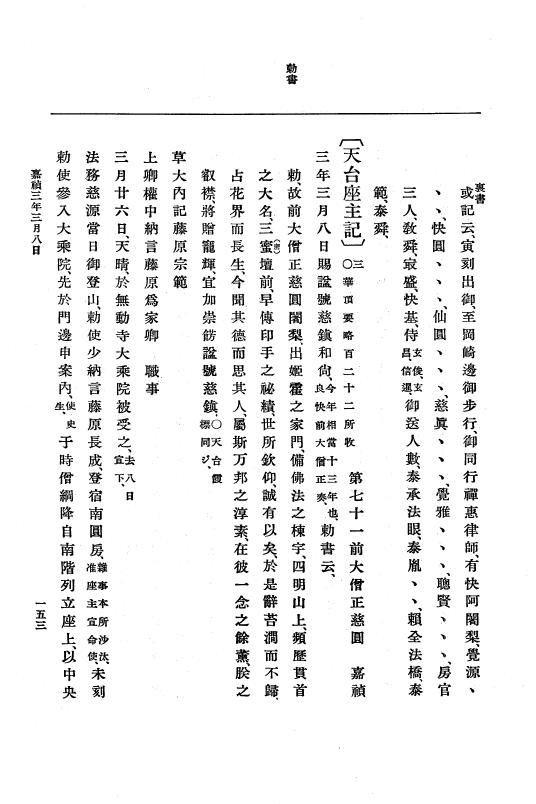 勅書
裏書
或記云、寅刻出御、至岡崎邊御步行、御同行禪惠律師、有快阿闍梨、覺源ヽ
ヽヽ、快圓ヽヽヽ、仙圓ヽヽヽ、慈眞ヽヽヽ、覺雅ヽヽヽ、聰賢ヽヽヽ、房官
三人、敎舜、寂盛、快基、侍玄俊、玄昌、信暹、御送人數、泰承法眼、泰胤ヽヽ、賴全法橋、泰
範、泰舜、
〔天台座主記〕三〇華頂要略百二十二所收 第七十一前大僧正慈圓 嘉禎
三年三月八日賜諡號慈鎭和尙、今年相當十三年也、良快前大僧正奏、勅書云、
勅、故前大僧正慈圓闍梨、出姬霍之家門、備佛法之棟宇、四明山上、頻歷貫首
之大名、三蜜(密)壇前、早傳印手之祕績、世所欽仰、誠有以矣、於是辭苔澗而不歸、
占花界而長生、今聞其德而思其人、屬斯万邦之淳素、在彼一念之餘薰、朕之
叡襟、將贈寵輝、宜加崇餝諡號慈鎭、〇天台霞標同ジ、
草大內記藤原宗範
上卿權中納言藤原爲家卿 職事
三月廿六日、天晴、於無動寺大乘院被受之、去八日宣下、
法務慈源當日御登山、勅使少納言藤原長成、登宿南圓房、雜事本所沙汰、准座主宣命使、未刻
勅使參入大乘院、先於門邊申案內、使史生、于時僧綱降自南階列立座上、以中央
嘉禎三年三月八日
一五三